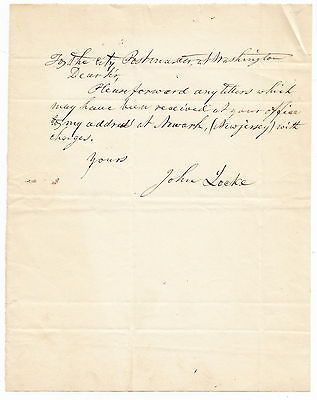 To, The city Postmaster, at Washington
Dear Sir,
Please forward any letters which
may have been received at your office
to my address at Newark, (New jersey) with
charges.
Yours
John Locke